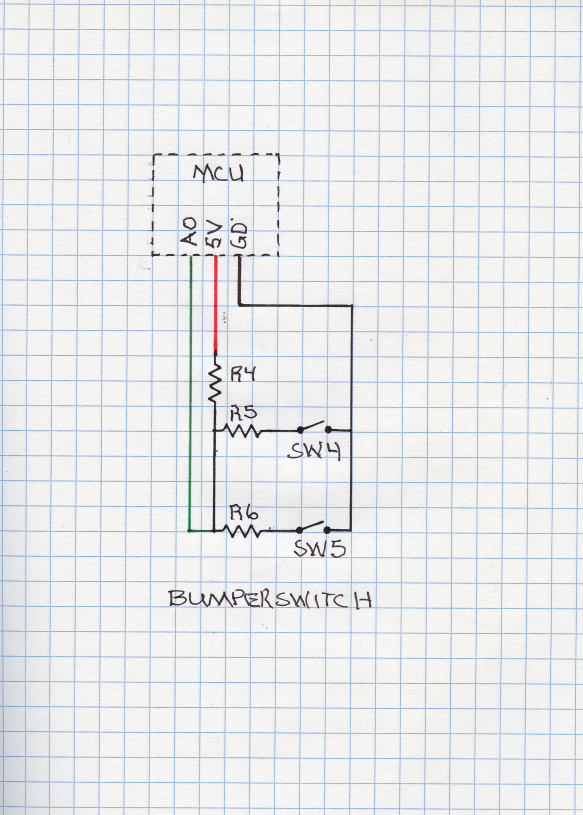 MCU
A0
5V
GD
R4
R5
SW4
R6
SW5
BUMPERSWITCH